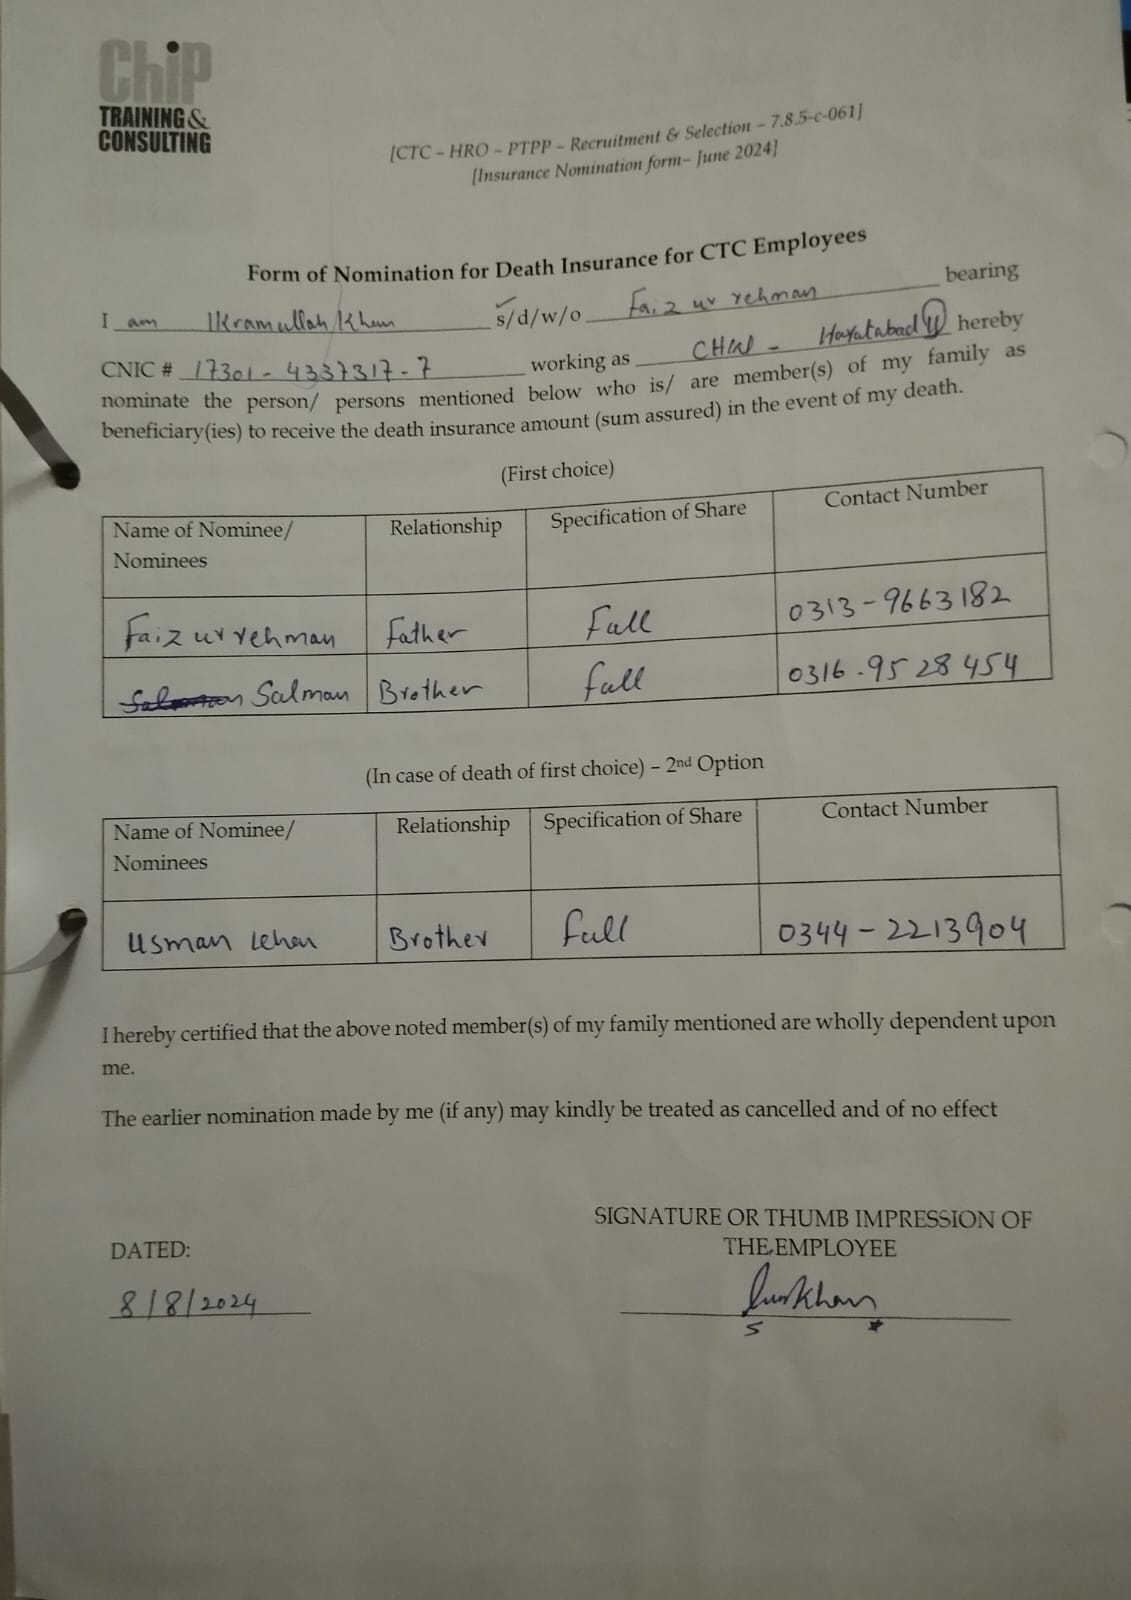 ChiP
TRAINING &
CONSULTING
[CTC – HRO – PTPP – Recruitment & Selection – 7.8.5-c-061]
[Insurance Nomination form– June 2024]
Form of Nomination for Death Insurance for CTC Employees
I am Ikramullah Khan s/d/w/o Faiz ur rehman bearing
CNIC # 17301-4337317-7 working as CHW - Hayatabad hereby
nominate the person/ persons mentioned below who is/ are member(s) of my family as
beneficiary(ies) to receive the death insurance amount (sum assured) in the event of my death.
(First choice)
Name of Nominee/ Relationship Specification of Share Contact Number
Nominees
Faiz ur rehman Father Full 0313-9663182
Salman Brother full 0316-9528454
(In case of death of first choice) – 2nd Option
Name of Nominee/ Relationship Specification of Share Contact Number
Nominees
Usman khan Brother full 0344-2213904
I hereby certified that the above noted member(s) of my family mentioned are wholly dependent upon
me.
The earlier nomination made by me (if any) may kindly be treated as cancelled and of no effect
SIGNATURE OR THUMB IMPRESSION OF
DATED: THE EMPLOYEE
8/8/2024